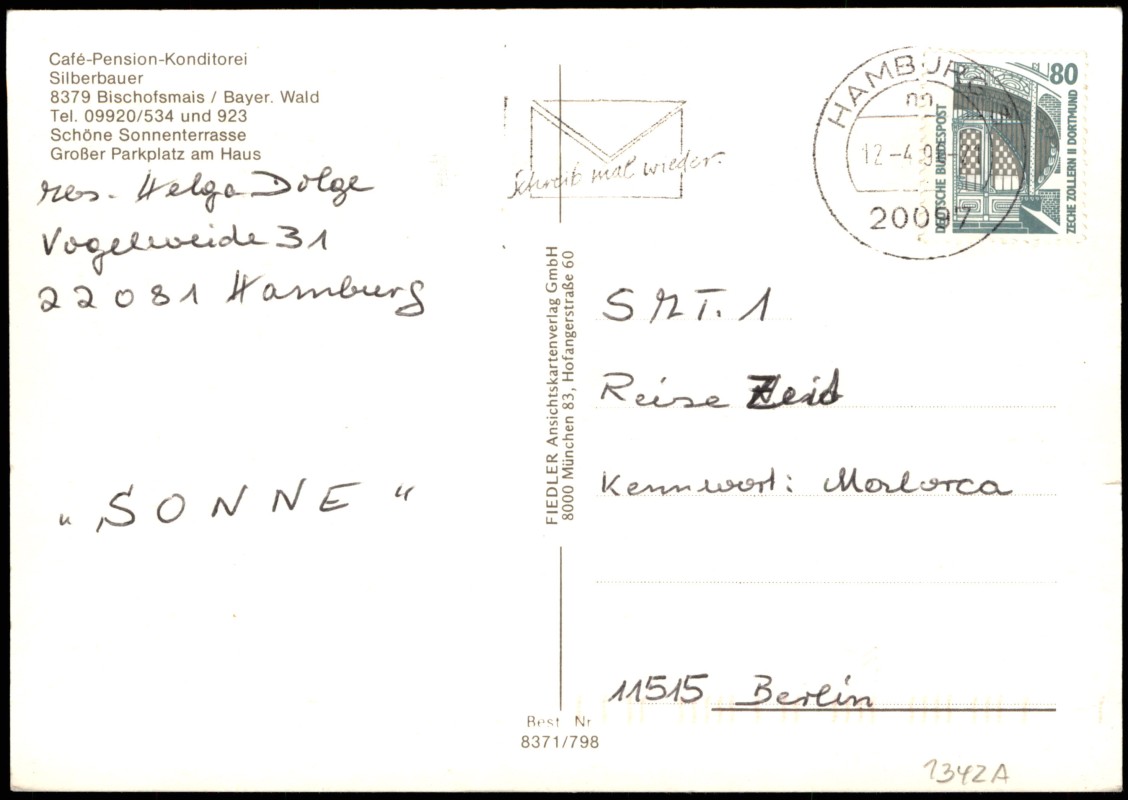 Café-Pension-Konditorei
Silberbauer
8379 Bischofsmais / Bayer. Wald
Tel. 09920/534 und 923
Schöne Sonnenterrasse
Großer Parkplatz am Haus
Helga Dolge
Vogelweide 31
22081 Hamburg
„SONNE“
Schreib mal wieder.
HAMBURG
12-4.9
20097
80
DEUTSCHE BUNDESPOST
ZECHE ZOLLERN II DORTMUND
FIEDLER Ansichtskartenverlag GmbH
8000 München 83, Hofangerstraße 60
Reise Zeit
Kennwort: Morlorca
11515 Berlin
Best Nr
8371/798
1342A